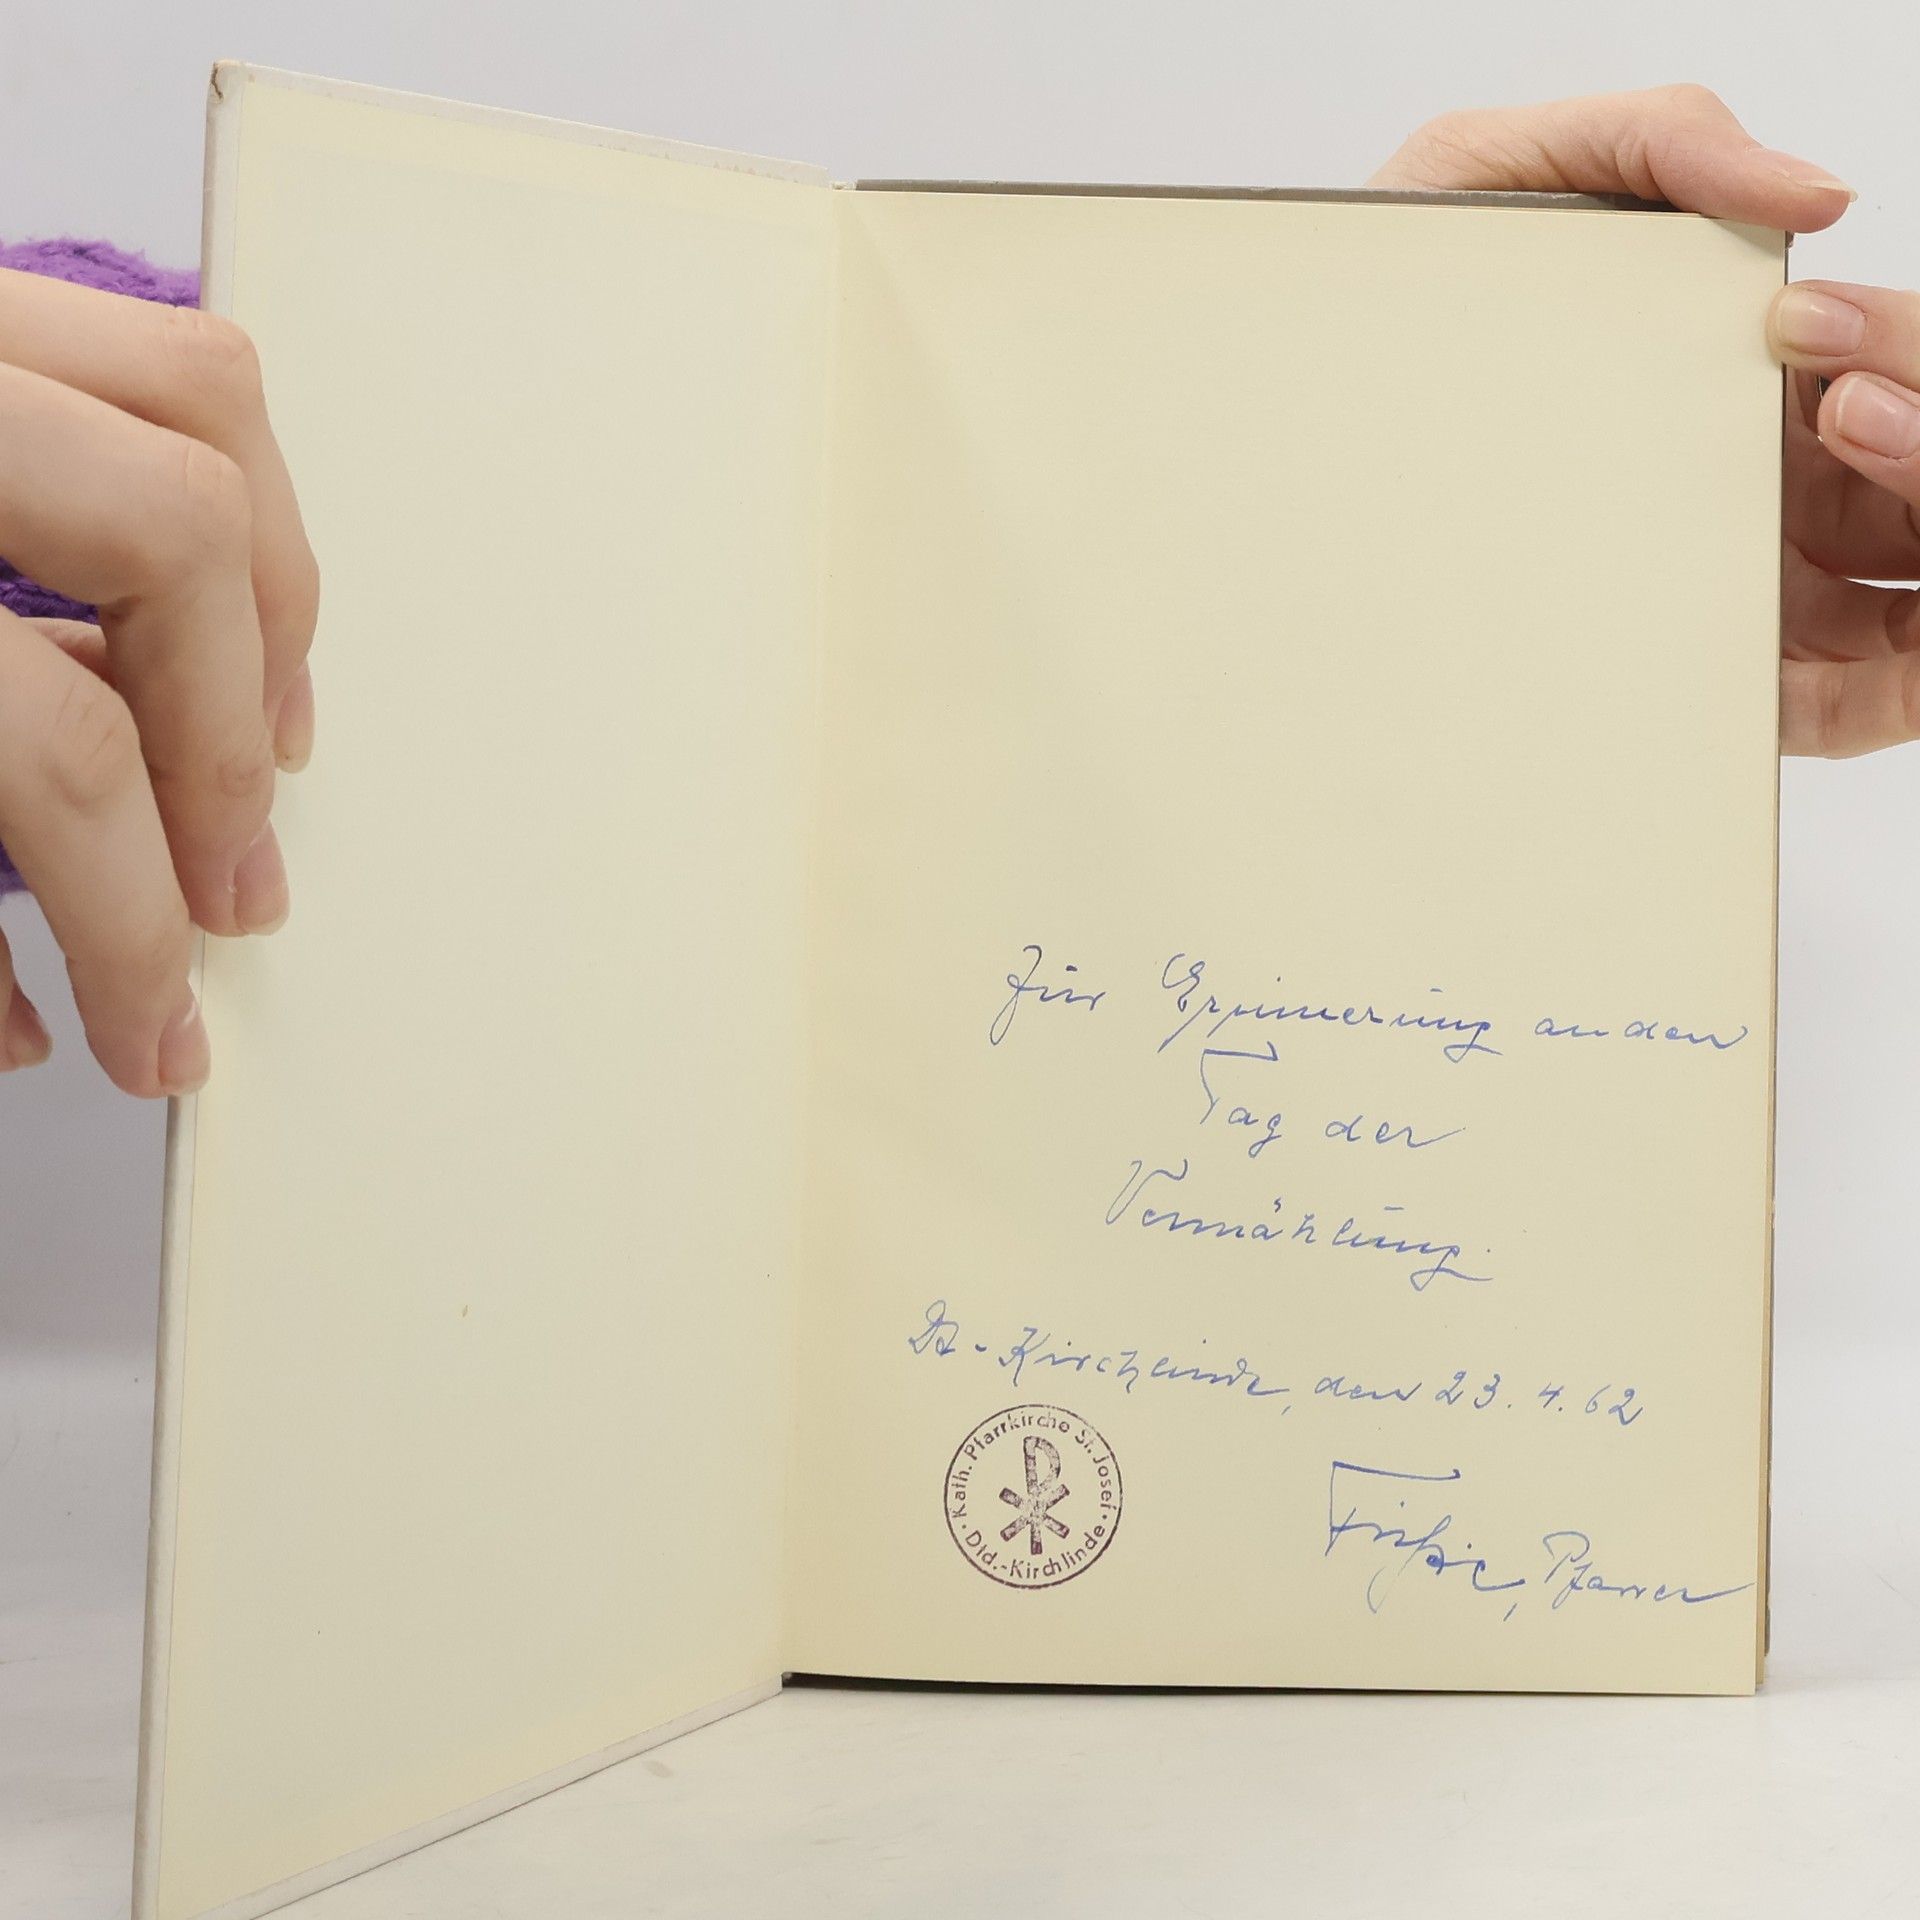 Zur Erinnerung an den
Tag der
Vermählung.
Do-Kirchlinde, den 23. 4. 62
Kath. Pfarrkirche St. Josef
Dtd.-Kirchlinde
Pfarrer